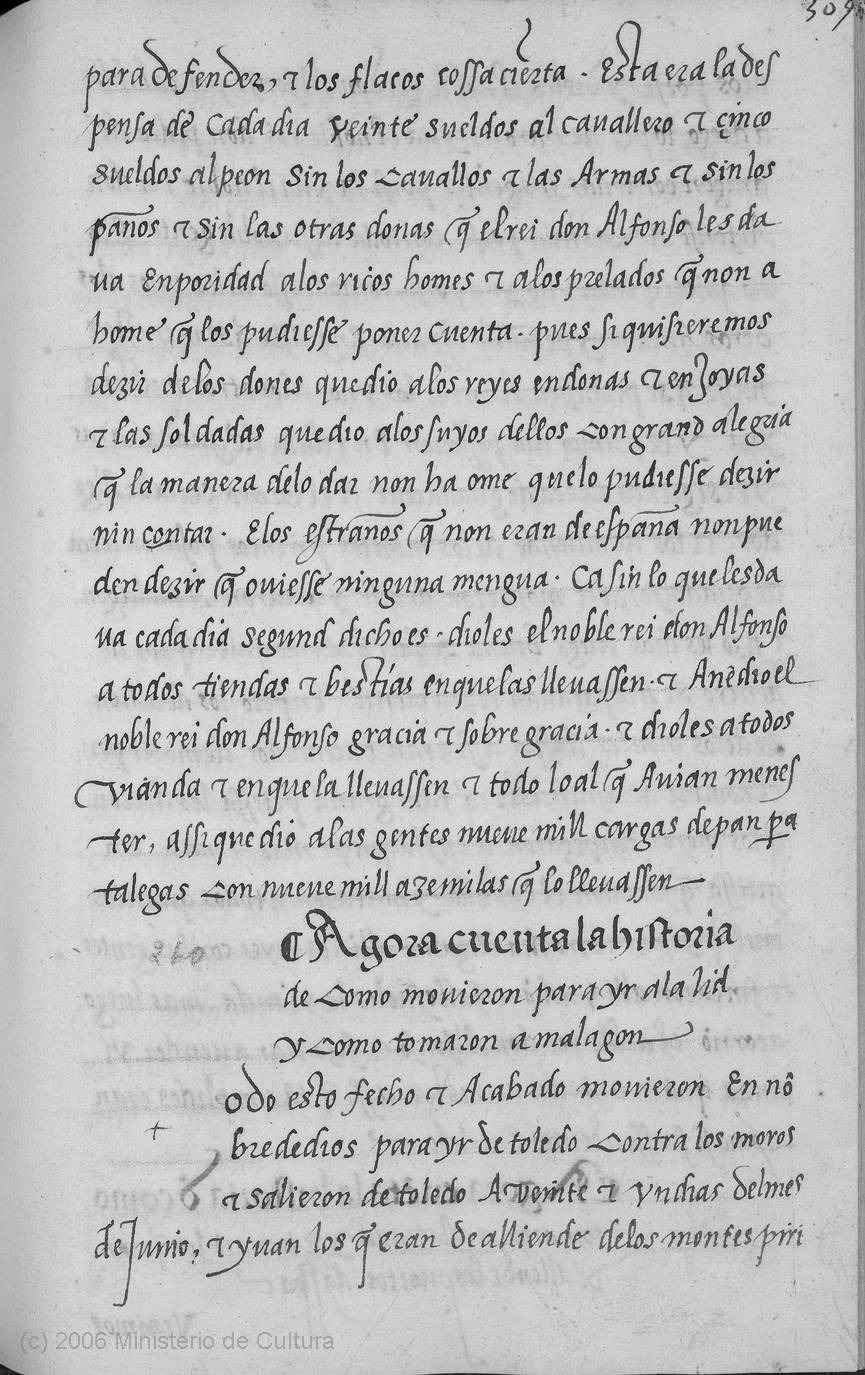 309
para defender, τ los flacos cossa cierta . Esta era la des
pensa de Cada dia veinte sueldos al cauallero τ çinco
sueldos al peon Sin los Cauallos τ las Armas τ sin los
pan̄os τ sin las otras donas q̄ el rei don Alfonso les da
ua Enporidad alos ricos homes τ alos prelados q̄ non a
home q̄ los pudiesse poner cuenta . pues si quisieremos
dezir delos dones que dio alos reyes endonas τ en Joyas
τ las soldadas que dio alos suyos dellos Con grand alegria
q̄ la manera delo dar non ha ome quelo pudiesse dezir
nin contar . Elos estran̄os q̄ non eran de espan̄a non pue
den dezir q̄ ouiesse ninguna mengua . Ca sin lo que les da
ua cada dia segund dicho es . dioles el noble rei don Alfonso
a todos tiendas τ bestias en que las lleuassen . τ Anēdio el
noble rei don Alfonso gracia τ sobre gracia . τ dioles a todos
vianda τ en que la lleuassen τ todo lo al q̄ Auian menes
ter, assi que dio alas gentes nueue mill cargas de pan pa
talegas Con nueue mill azemilas q̄ lo lleuassen
260
¶ Agora cuenta la historia
de Como mouieron para yr ala lid
y Como tomaron a malagon
odo esto fecho τ Acabado mouieron En nō
bre de dios para yr de toledo Contra los moros
τ salieron de toledo A veinte τ vn dias del mes
de Junio, τ yuan los q̄ eran de alliende delos montes piri
(c) 2006 Ministerio de Cultura